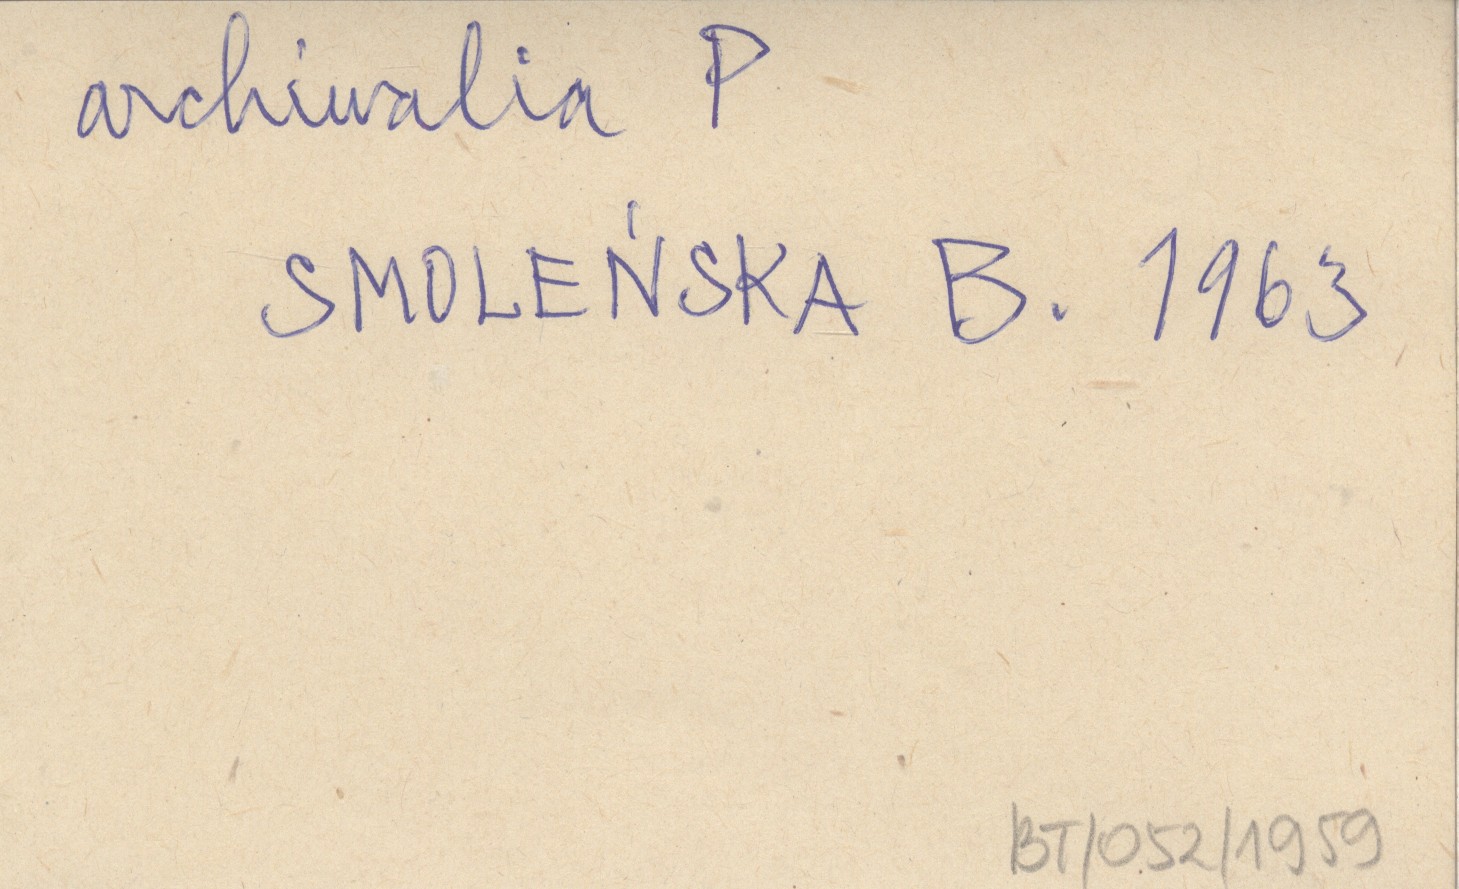 archiwalia P
SMOLEŃSKA B. 1963
BT/052/1959